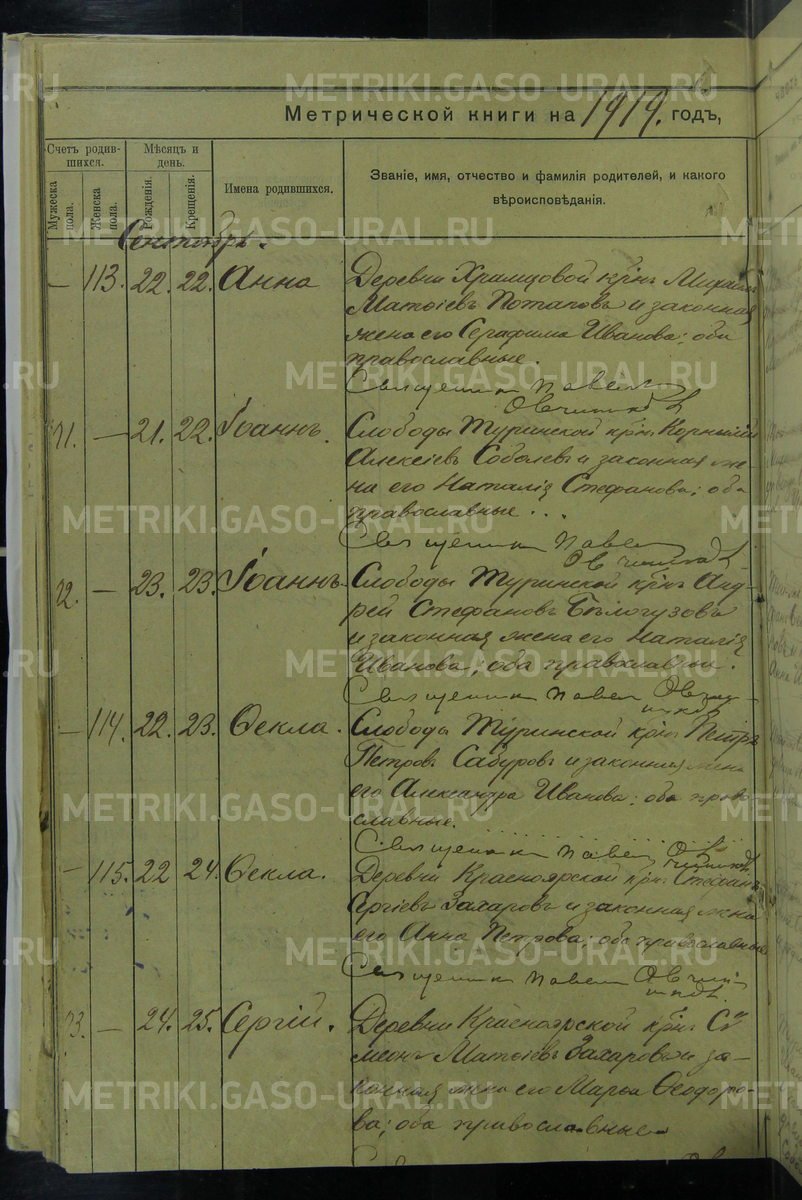 Метрической книги на 1919. годъ,
Счетъ родив-
шихся.
Мѣсяцъ и
день.
Имена родившихся.
Званіе, имя, отчество и фамилія родителей, и какого
вѣроисповѣданія.
Мужеска
пола.
Женска
пола.
Рожденія.
Крещенія.
Сентябрь.
— 113. 22. 22. Анна Деревни Храмцовой крін. Михаилъ
Матѳіевъ Потаповъ и законная
жена его Серафима Иванова; оба
православные.
Священникъ Павелъ
Овчинниковъ
71. — 21. 22. Іоаннъ. Слободы Туринской крін. Корнилій
Алексіевъ Соболевъ и законная же-
на его Наталія Стефанова; оба
православные...
Священникъ Павелъ
Овчинниковъ
72. — 23. 23. Іоаннъ. Слободы Туринской крін. Анд-
рей Стефановъ Бѣлогузовъ
и законная жена его Наталія
Иванова; оба православны.
Священникъ Павелъ Овчин-
никовъ
— 114. 22. 23. Ѳекла. Слободы Туринской крін. Петръ
Петровъ Сабуровъ и законная жена
его Александра Иванова; оба право-
славные.
Священникъ Павелъ Овчинниковъ
— 115. 22 24. Ѳекла. Деревни Красноярской крін. Стефанъ
Сергіевъ Захаровъ и законная жена
его Анна Петрова; оба православные
Священникъ Павелъ Овчин-
никовъ.
73. — 24. 25. Сергій. Деревни Красноярской крін. Сѵ-
меонъ Матѳіевъ Захаровъ и за-
конная жена его Марѳа Ѳеодоро-
ва; оба православные
METRIKI.GASO-URAL.RU